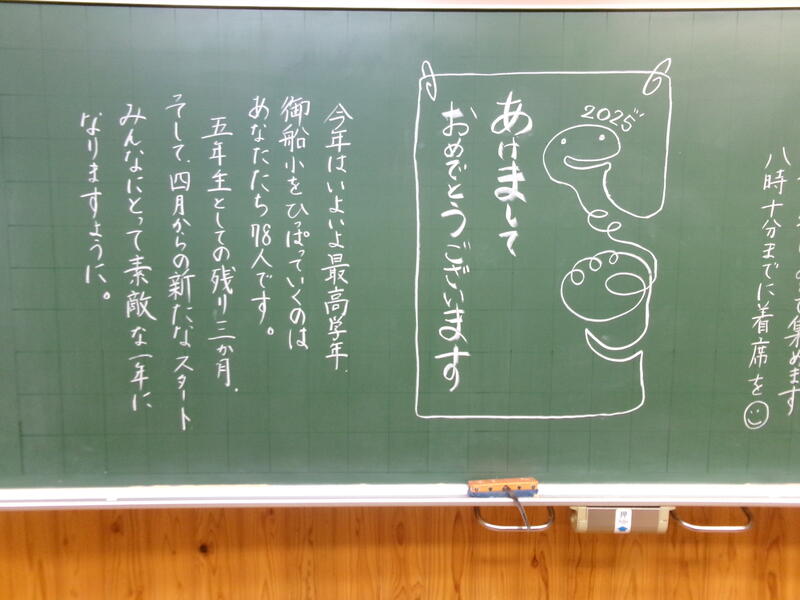 集めます
八時十分までに着席を
2025
あけまして
おめでとうございます
今年はいよいよ最高学年.
御船小をひっぱっていくのは
あなたたち78人です。
五年生としての残り三か月.
そして、四月からの新たなスタート
みんなにとって素敵な一年に
なりますように。
押